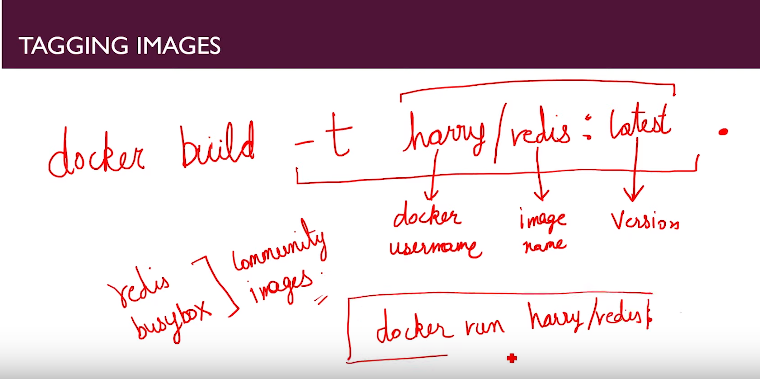 TAGGING IMAGES
docker build -t harry/redis : latest .
docker username
image name
version
redis
busybox
community images
docker run harry/redis: